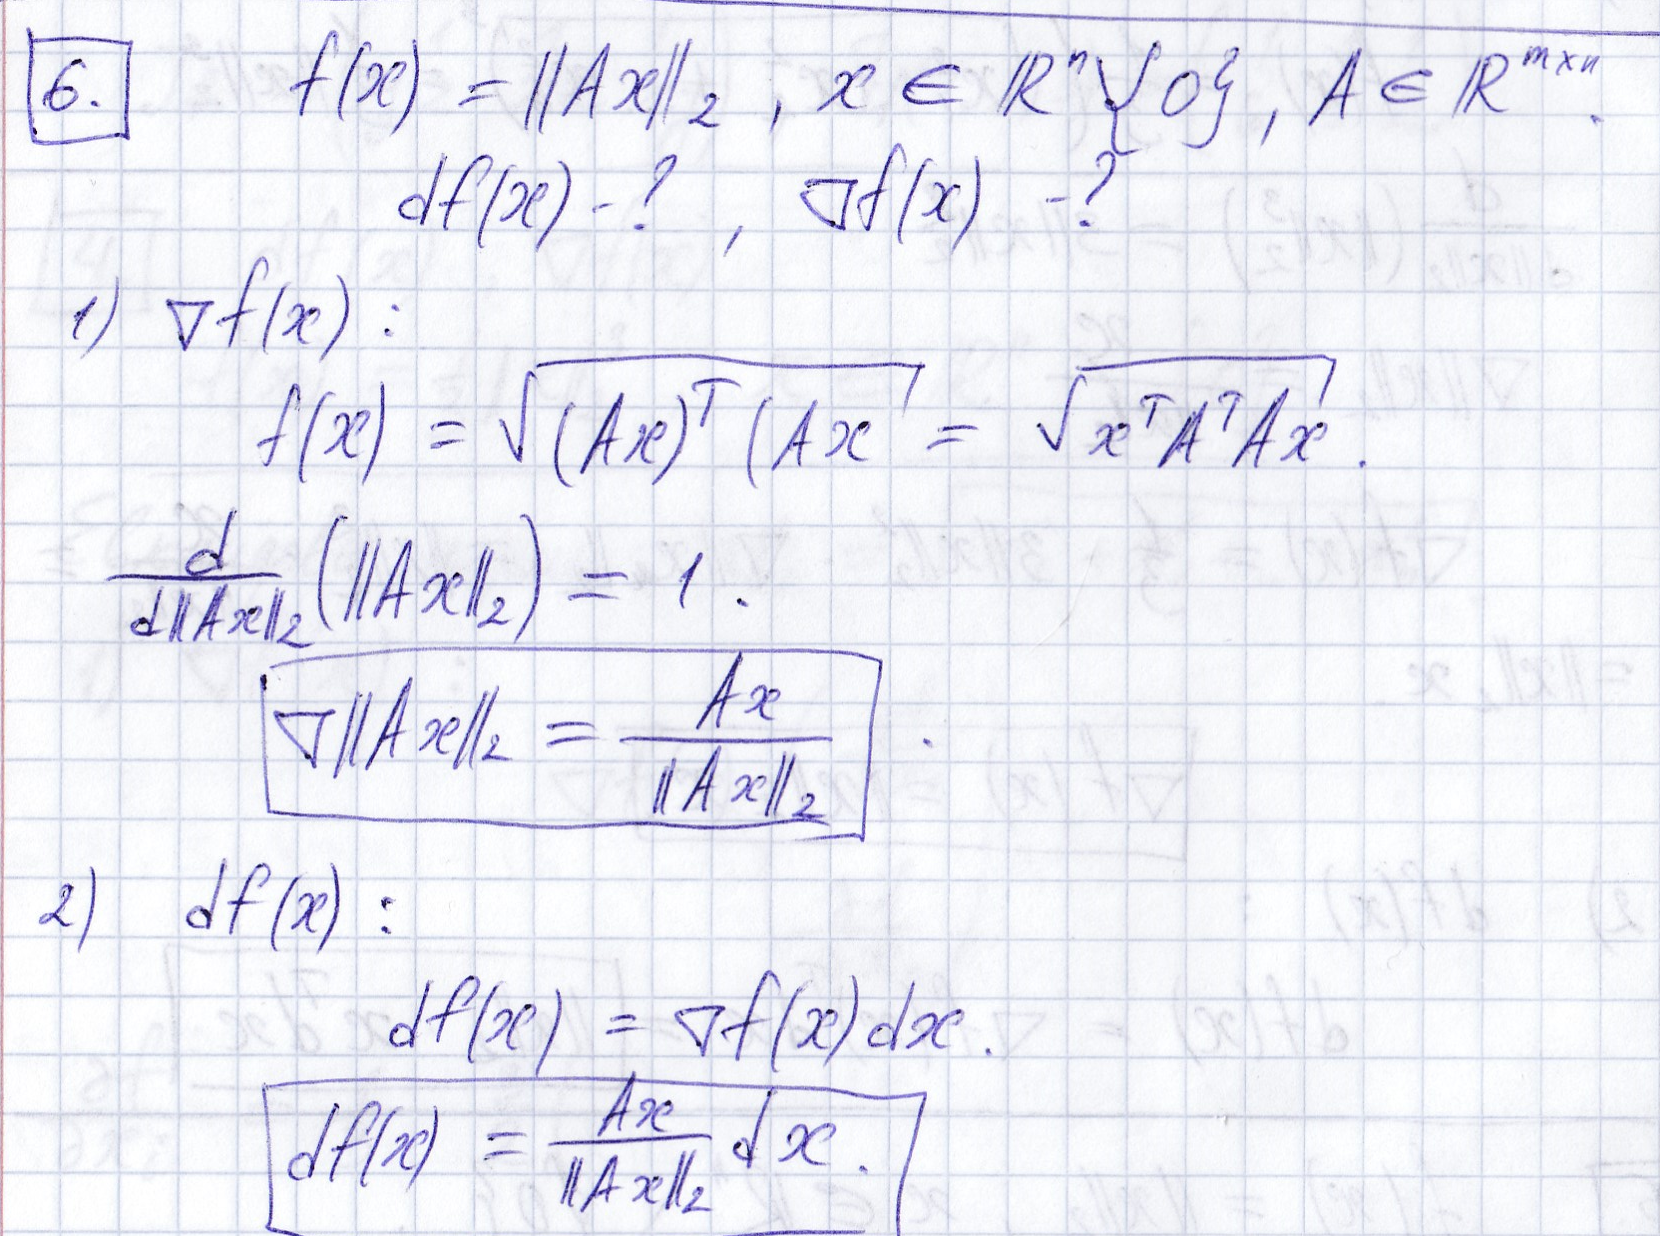 6. f(x) = ||Ax||₂, x ∈ ℝⁿ\{0}, A ∈ ℝᵐˣⁿ.
df(x) - ?, ∇f(x) - ?
1) ∇f(x):
f(x) = √((Ax)ᵀ(Ax = √(xᵀAᵀAx).
d/d||Ax||₂ (||Ax||₂) = 1.
∇||Ax||₂ = Ax/||Ax||₂.
2) df(x):
df(x) = ∇f(x)dx.
df(x) = Ax/||Ax||₂ dx.